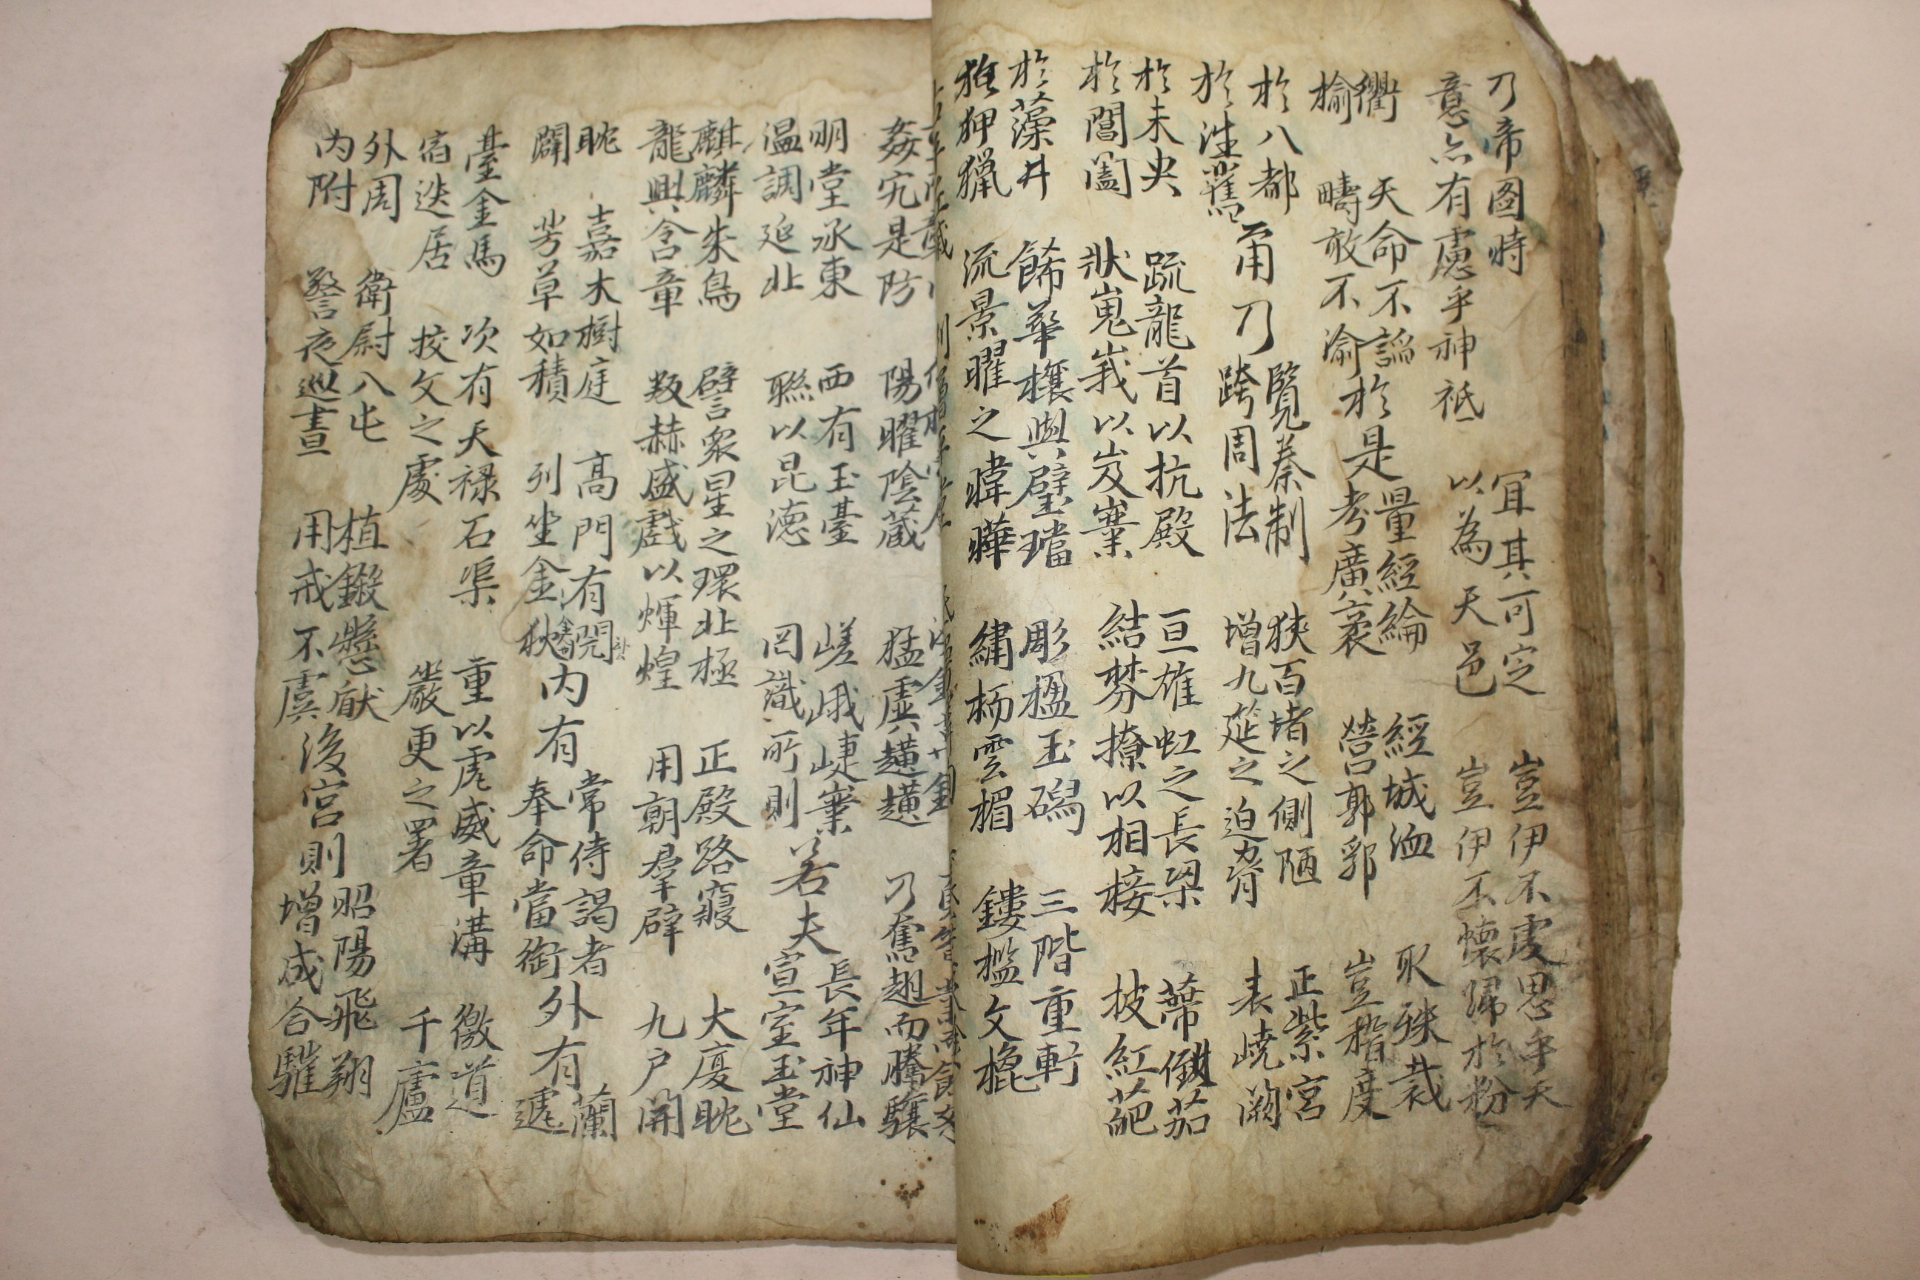 乃帝圖時 冝其可定 豈伊不虔思乎天
意亦有慮乎神祗 以為天邑 豈伊不懷歸於枌
衢 天命不謟 於是 量經綸 經城洫 取殊裁
榆 疇敢不渝 考廣袤 營郭郛 豈稽度
於八都 爾乃 覽秦制 狹百堵之側陋 正紫宮
於往舊 跨周法 增九筵之迫脅 表嶢闕
於未央 疏龍首以抗殿 亘雄虹之長梁 蔕倒茄
於閶闔 狀嵬峩以岌嶪 結棼橑以相接 披紅葩
於藻井 餙華榱與璧璫 彫楹玉磶 三階重軒
狎獵 流景曜之暐曄 繡栭雲楣 鏤檻文㮰
姦宄是防 陽曜陰蔵 猛虡趪趪 乃奮翅而騰驤
明堂丞東 西有玉臺 嵯峨崨嶪 若夫 長年神仙
温調延北 聯以昆德 罔識所則 宣室玉堂
麒麟朱鳥 譬衆星之環北極 正殿路寢 大廈眈
龍興含章 叛赫盛戲以煇煌 用朝羣辟 九户開
眈 嘉木樹庭 高門有閌 内有 常侍謁者 外有 蘭
闢 芳草如積 列坐金狄 奉命當衘 遞
臺金馬 次有天禄石渠 重以虎威章溝 徼道
宿迭居 挍文之處 嚴更之署 千廬
外周 衛尉八屯 植鎩懸瞂 後宮則 昭陽飛翔
内附 警夜巡晝 用戒不虞 增成合驩